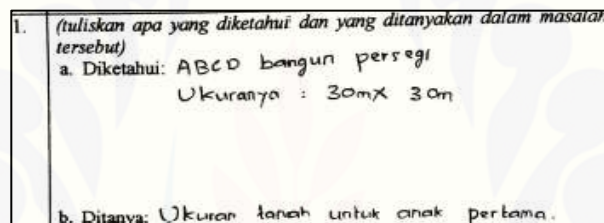 1. (tuliskan apa yang diketahui dan yang ditanyakan dalam masalah
tersebut)
a. Diketahui: ABCD bangun persegi
Ukuranya : 30m X 30m
b. Ditanya: Ukuran tanah untuk anak pertama.